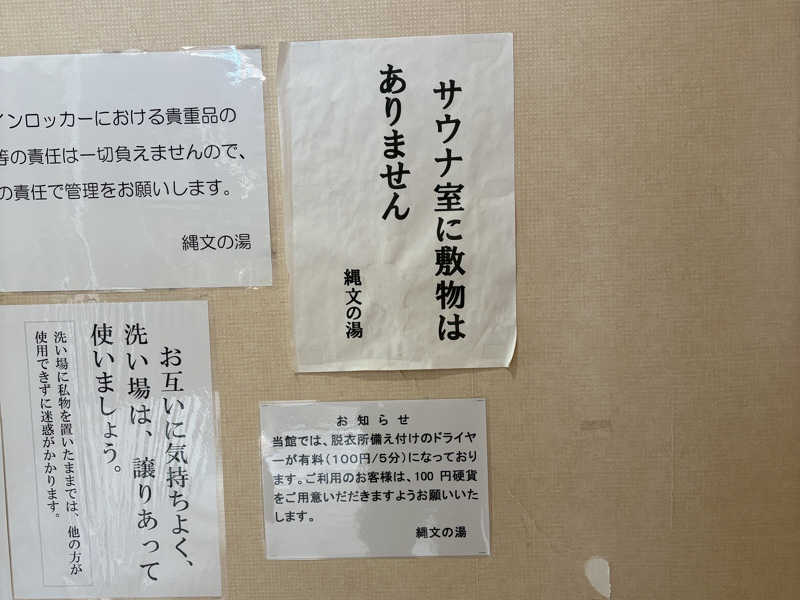 インロッカーにおける貴重品の
等の責任は一切負えませんので、
の責任で管理をお願いします。
縄文の湯
サウナ室に敷物は
ありません
縄文の湯
お互いに気持ちよく、
洗い場は、譲りあって
使いましょう。
洗い場に私物を置いたままでは、他の方が
使用できずに迷惑がかかります。
お知らせ
当館では、脱衣所備え付けのドライヤ
ーが有料(100円/5分)になっており
ます。ご利用のお客様は、100 円硬貨
をご用意いだだきますようお願いいた
します。
縄文の湯